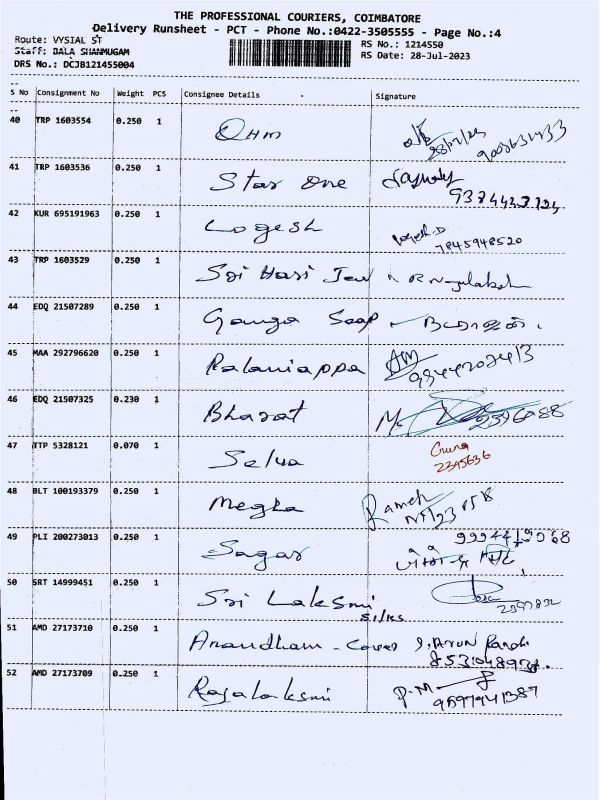 THE PROFESSIONAL COURIERS, COIMBATORE
Delivery Runsheet - PCT - Phone No.:0422-3505555 - Page No.:4
Route: VYSIAL ST
RS No.: 1214550
Staff: BALA SHANMUGAM
RS Date: 28-Jul-2023
DRS No.: DCJB121455004
S No Consignment No Weight PCS Consignee Details Signature
40 TRP 1603554 0.250 1 Ohm
41 TRP 1603536 0.250 1 Star One
42 KUR 695191963 0.250 1 Logesh
7845948520
43 TRP 1603529 0.250 1 Sri Hari Jew
44 EDQ 21507289 0.250 1 Ganga Soap
45 MAA 292796620 0.250 1 Palaniappa
46 EDQ 21507325 0.230 1 Bharat
47 TTP 5328121 0.070 1 Selva Guna
2345636
48 BLT 100193379 0.250 1 Megha Ramesh
49 PLI 200273013 0.250 1 Sagar
50 SRT 14999451 0.250 1 Sri Laksmi
silks
51 AMD 27173710 0.250 1 Anandham - Covers
52 AMD 27173709 0.250 1 Rajalaksmi P.M
9597941387